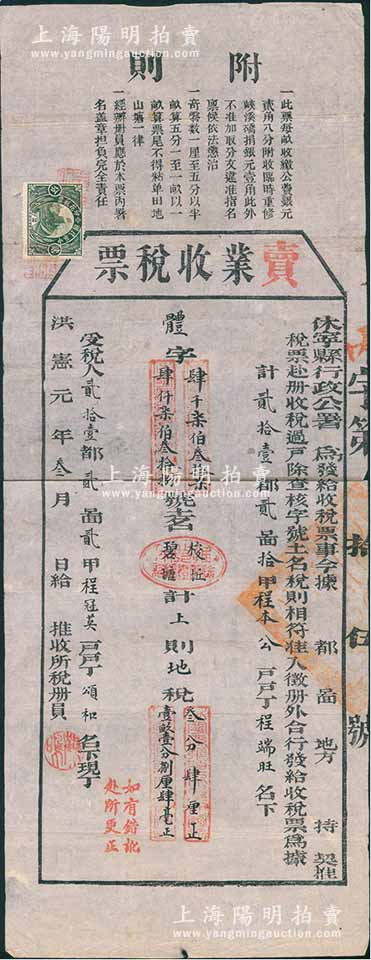 上海陽明拍賣
www.yangmingauction.com
附則
一此票每畝收繳公費銀元
貳角八分附收臨時重修
峽溪灣捐銀元壹角此外
不准加取分文違准指名
稟候依法懲治
一奇零數一厘至五分以半
畝算五分一至一畝以一
畝算票尾不得粘單田地
山塘一律
一經辦册員應於本票內署
名蓋章担負完全責任
賣業收稅票
字第 拾伍號
休寧縣行政公署 為發給收稅票事今據 都 啚 地方 持契推
稅票赴册收稅過戶除查核字號土名稅則相符准入徵册外合行發給收稅票為據
計 貳拾壹都貳啚拾甲程本公戶戶丁程端旺名下
體字
肆千柒伯叁拾柒
肆仟柒伯叁拾捌
號土名
計上則地稅
叁分肆厘正
壹畝壹分捌厘肆毫正
受稅人貳拾壹都貳啚貳甲程冠英戶戶丁頌和名下現丁
洪憲元年叁月 日給 推收所稅册員
如有錯訛
赴所更正
上海陽明拍賣
www.yangmingauction.com